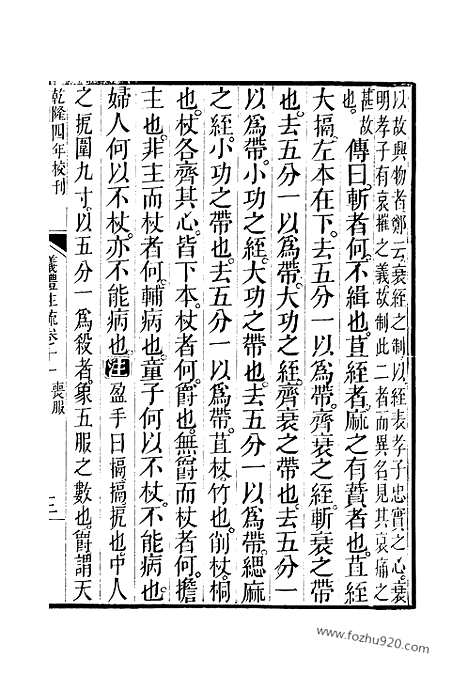 以故與物者鄭云衰絰之制以絰表孝子忠實之心衰
明孝子有哀摧之義故制此二者而異名見其哀痛之
甚故
也。傳曰斬者何。不緝也。苴絰者。麻之有蕡者也。苴絰
大搹。左本在下。去五分一以爲帶。齊衰之絰。斬衰之帶
也。去五分一以爲帶。大功之絰。齊衰之帶也。去五分一
以爲帶。小功之絰。大功之帶也。去五分一以爲帶。緦麻
之絰。小功之帶也。去五分一以爲帶。苴杖。竹也。削杖。桐
也。杖各齊其心。皆下本。杖者何。爵也。無爵而杖者何。擔
主也。非主而杖者何。輔病也。童子何以不杖。不能病也。
婦人何以不杖。亦不能病也。注盈手曰搹。搹扼也。中人
之扼圍九寸。以五分一爲殺者。象五服之數也。爵謂天
乾隆四年校刊
儀禮注疏卷十一 喪服
三
www.fozhu920.com